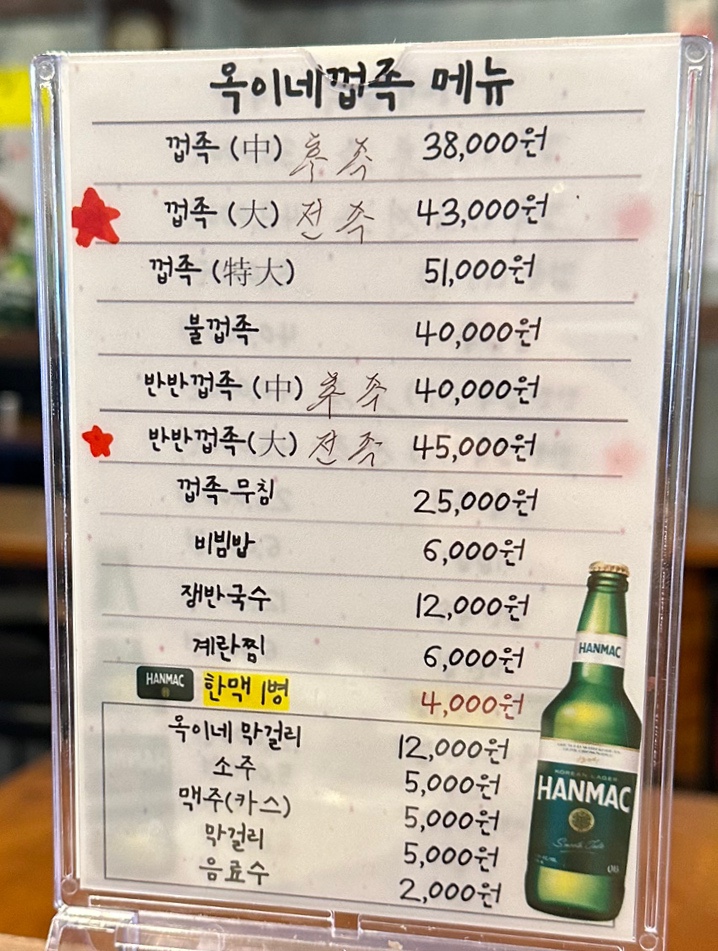 옥이네껍족 메뉴
껍족 (中) 후족 38,000원
껍족 (大) 전족 43,000원
껍족 (特大) 51,000원
불껍족 40,000원
반반껍족 (中) 후족 40,000원
반반껍족(大) 전족 45,000원
껍족무침 25,000원
비빔밥 6,000원
쟁반국수 12,000원
계란찜 6,000원
HANMAC 한맥 1병 4,000원
옥이네 막걸리 12,000원
소주 5,000원
맥주(카스) 5,000원
막걸리 5,000원
음료수 2,000원
HANMAC
KOREAN LAGER
HANMAC